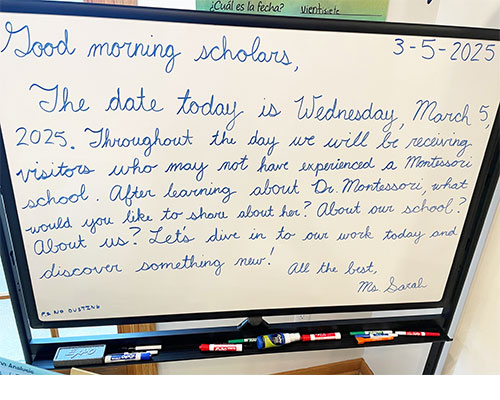 ¿Cuál es la fecha?
Good morning scholars,
3-5-2025
The date today is Wednesday, March 5,
2025. Throughout the day we will be receiving
visitors who may not have experienced a Montessori
school. After learning about Dr. Montessori, what
would you like to share about her? About our school?
About us? Let's dive in to our work today and
discover something new!
All the best,
Ms. Sarah
P.S. NO DUSTING